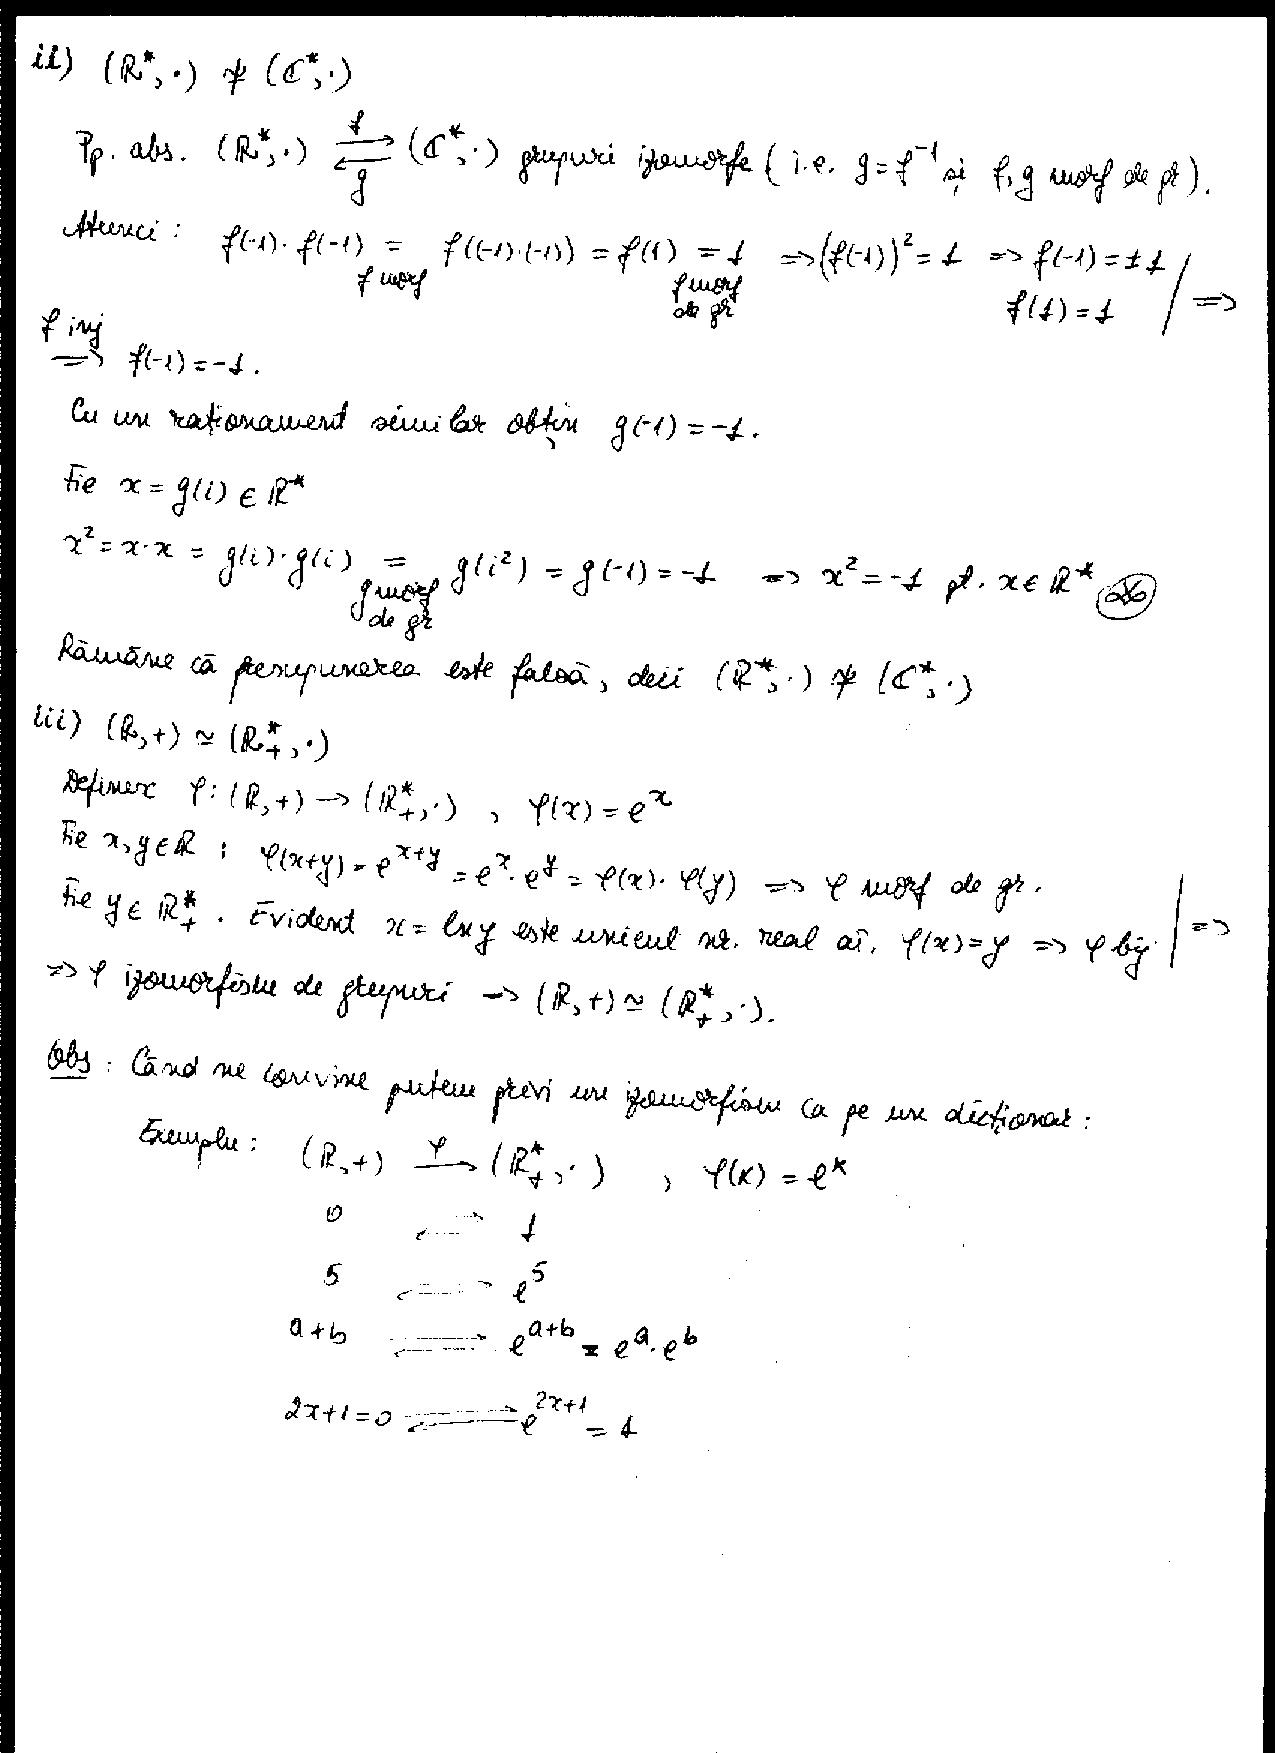 ii) (ℝ*, ·) ≄ (ℂ*, ·)
Pp. abs. (ℝ*, ·) ⇄ (ℂ*, ·) grupuri izomorfe (i.e. g = f⁻¹ și f, g morf de gr).
f
g
Atunci : f(-1)·f(-1) = f((-1)·(-1)) = f(1) = 1 => (f(-1))² = 1 => f(-1) = ±1 | =>
f morf
f morf de gr
f(1) = 1
f inj
=> f(-1) = -1.
Cu un raționament similar obțin g(-1) = -1.
Fie x = g(i) ∈ ℝ*
x² = x·x = g(i)·g(i) = g(i²) = g(-1) = -1 => x² = -1 pt. x ∈ ℝ*
g morf de gr
Rămâne că presupunerea este falsă, deci (ℝ*, ·) ≄ (ℂ*, ·)
iii) (ℝ, +) ≃ (ℝ*₊, ·)
Definesc φ: (ℝ, +) → (ℝ*₊, ·) , φ(x) = eˣ
Fie x, y ∈ ℝ ; φ(x+y) = e^{x+y} = eˣ · e^y = φ(x) · φ(y) => φ morf de gr. | =>
Fie y ∈ ℝ*₊ . Evident x = ln y este unicul nr. real aî. φ(x) = y => φ bij
=> φ izomorfism de grupuri → (ℝ, +) ≃ (ℝ*₊, ·).
Obs : Când ne convine putem privi un izomorfism ca pe un dicționar :
Exemplu : (ℝ, +) →^φ (ℝ*₊, ·) , φ(x) = eˣ
0 ⇄ 1
5 ⇄ e⁵
a+b ⇄ e^{a+b} = e^a · e^b
2x+1=0 ⇄ e^{2x+1} = 1